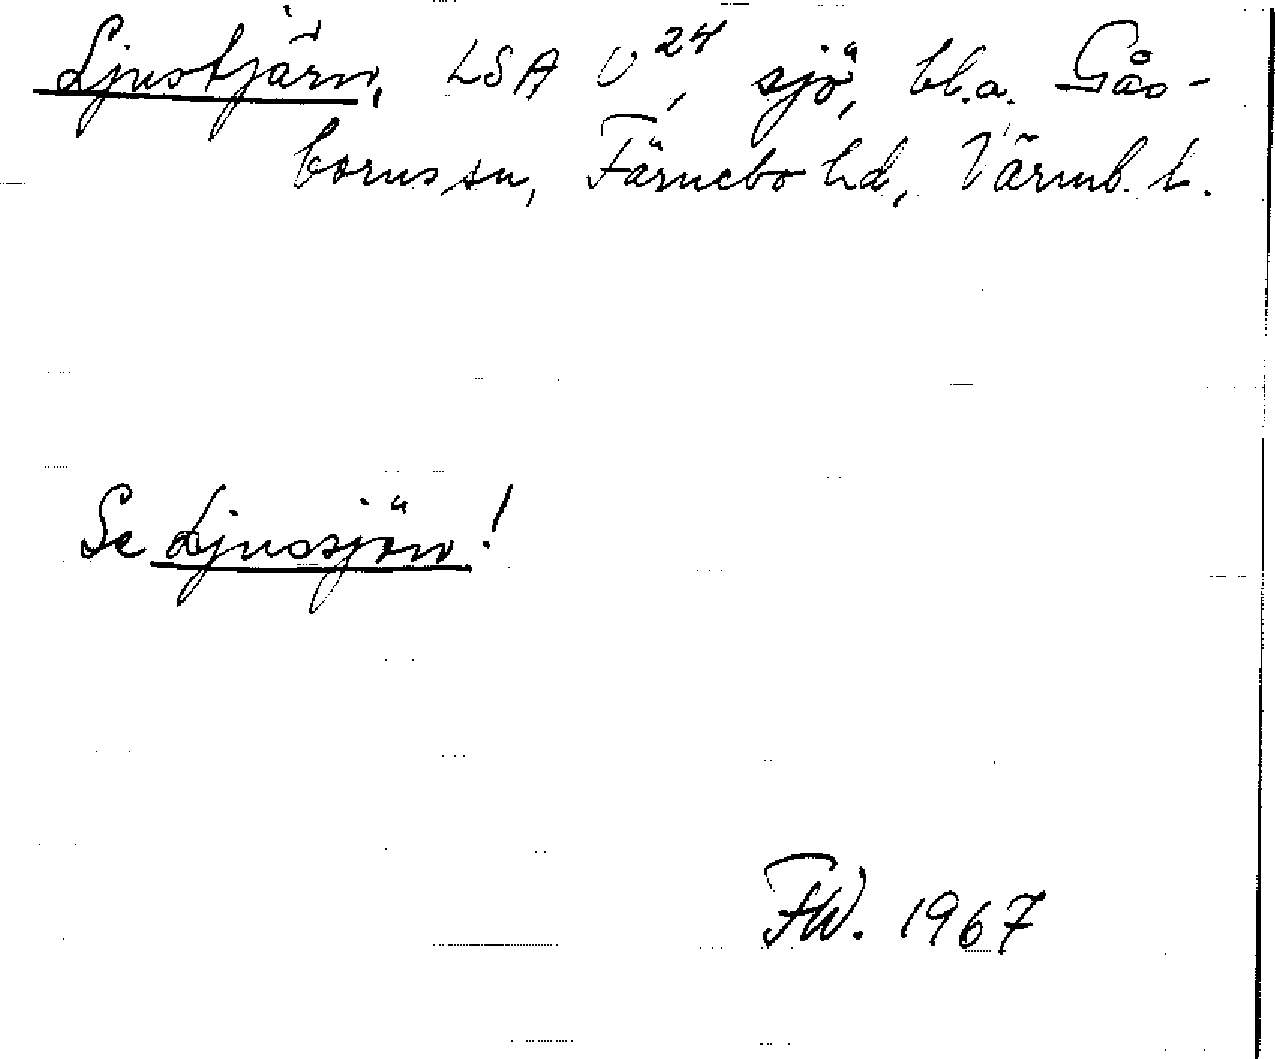 Ljustjärn, LSA U²⁴, sjö, bl.a. Gås-
borns sn, Färnebo hd, Värml. l.
Se Ljussjön!
FW. 1967